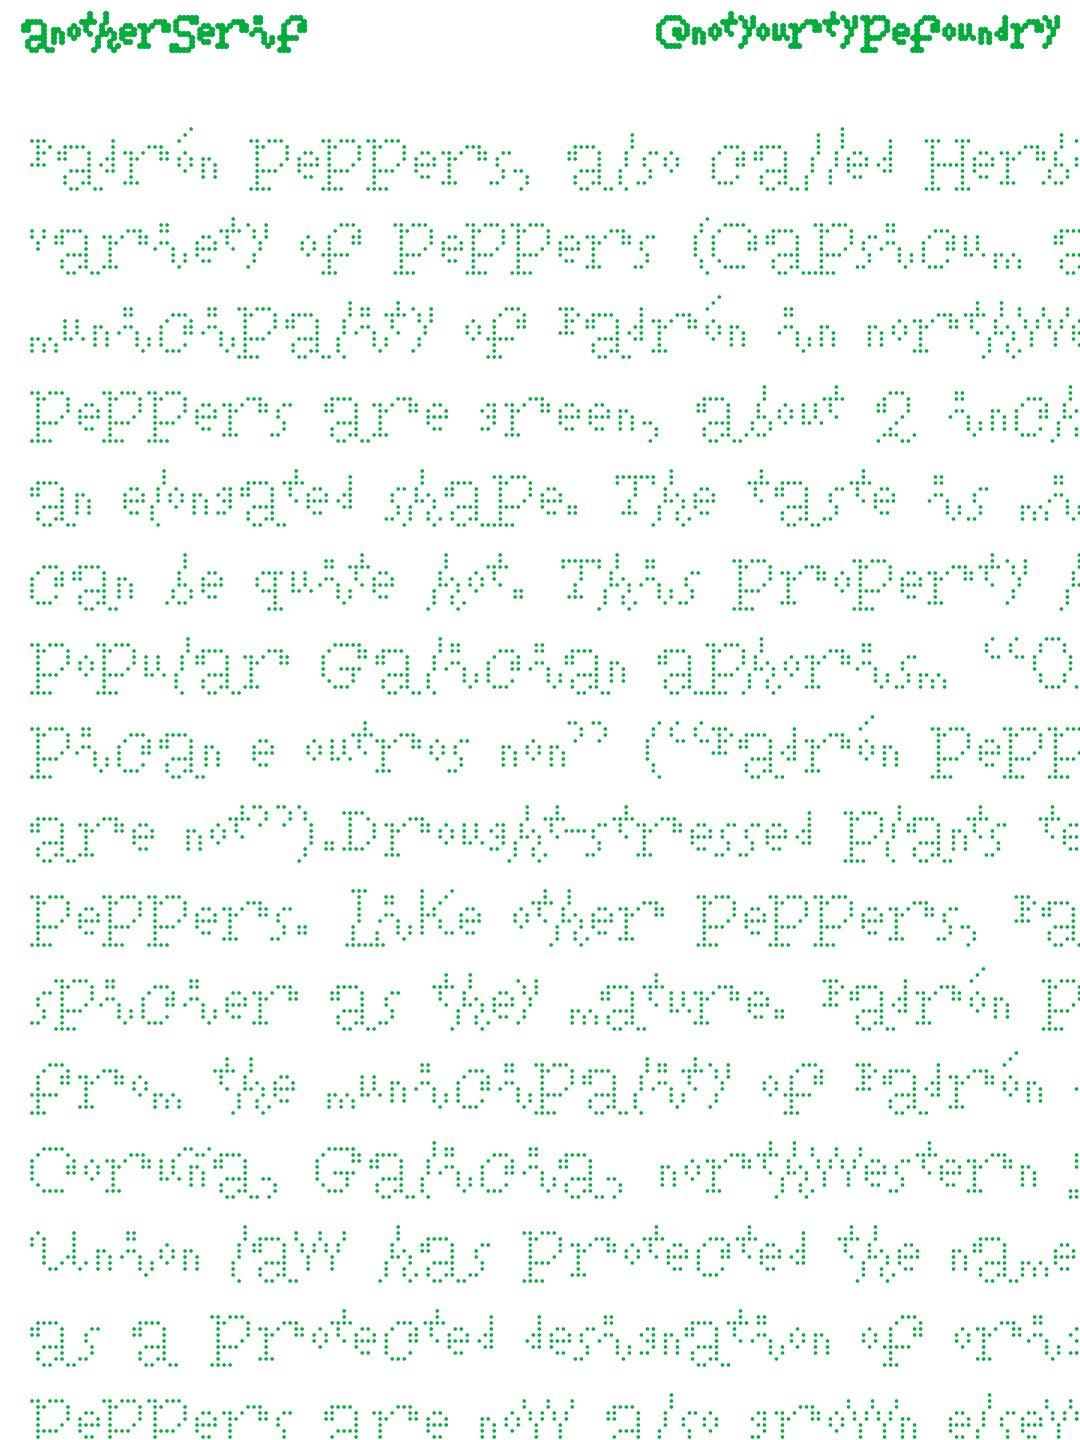 anotherSerif @notyourtypefoundry
Padrón peppers, also called Herb
variety of peppers (Capsicum a
municipality of Padrón in northwe
peppers are green, about 2 inch
an elongated shape. The taste is mi
can be quite hot. This property h
popular Galician aphorism “O
pican e outros non” (“Padrón pepp
are not”).Drought-stressed plants te
peppers. Like other peppers, Pa
spicier as they mature. Padrón p
from the municipality of Padrón
Coruña, Galicia, northwestern
Union law has protected the name
as a protected designation of oris
peppers are now also grown elsew